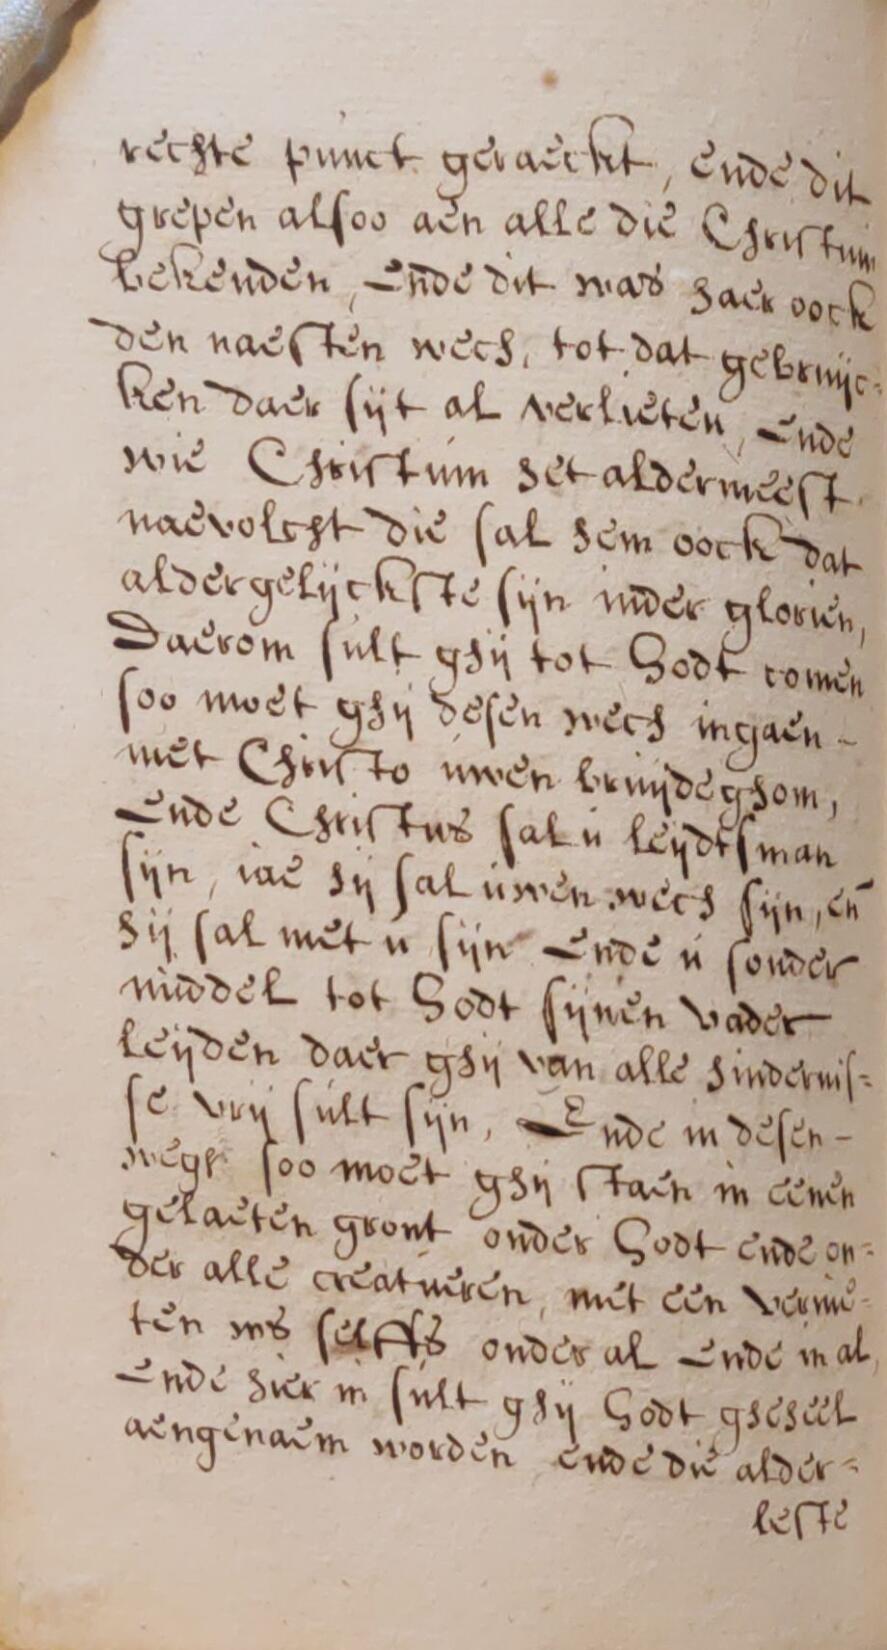 rechte punct geraeckt, ende dit
grepen alsoo aen alle die Christum
bekenden, Ende dit was haer oock
den naesten wech, tot dat gebruijc=
ken daer sijt al verlieten, Ende
wie Christum het aldermeest
naevolcht die sal hem oock dat
aldergelijckste sijn inder glorien,
Daerom sult ghij tot Godt comen
soo moet ghij desen wech ingaen -
met Christo uwen bruijdeghom,
Ende Christus sal u leijdtsman
sijn, iae hij sal uwen wech sijn, en̄
hij sal met u sijn Ende u sonder
middel tot Godt sijnen vader
leijden daer ghij van alle hindernis=
se vrij sult sijn, Ende in desen -
wegh soo moet ghij staen in eenen
gelaeten gront onder Godt ende on=
der alle creatueren, met een vernie=
ten ws selffs onder al Ende in al,
Ende hier in sult ghij Godt gheheel
aengenaem worden ende die alder=
leste